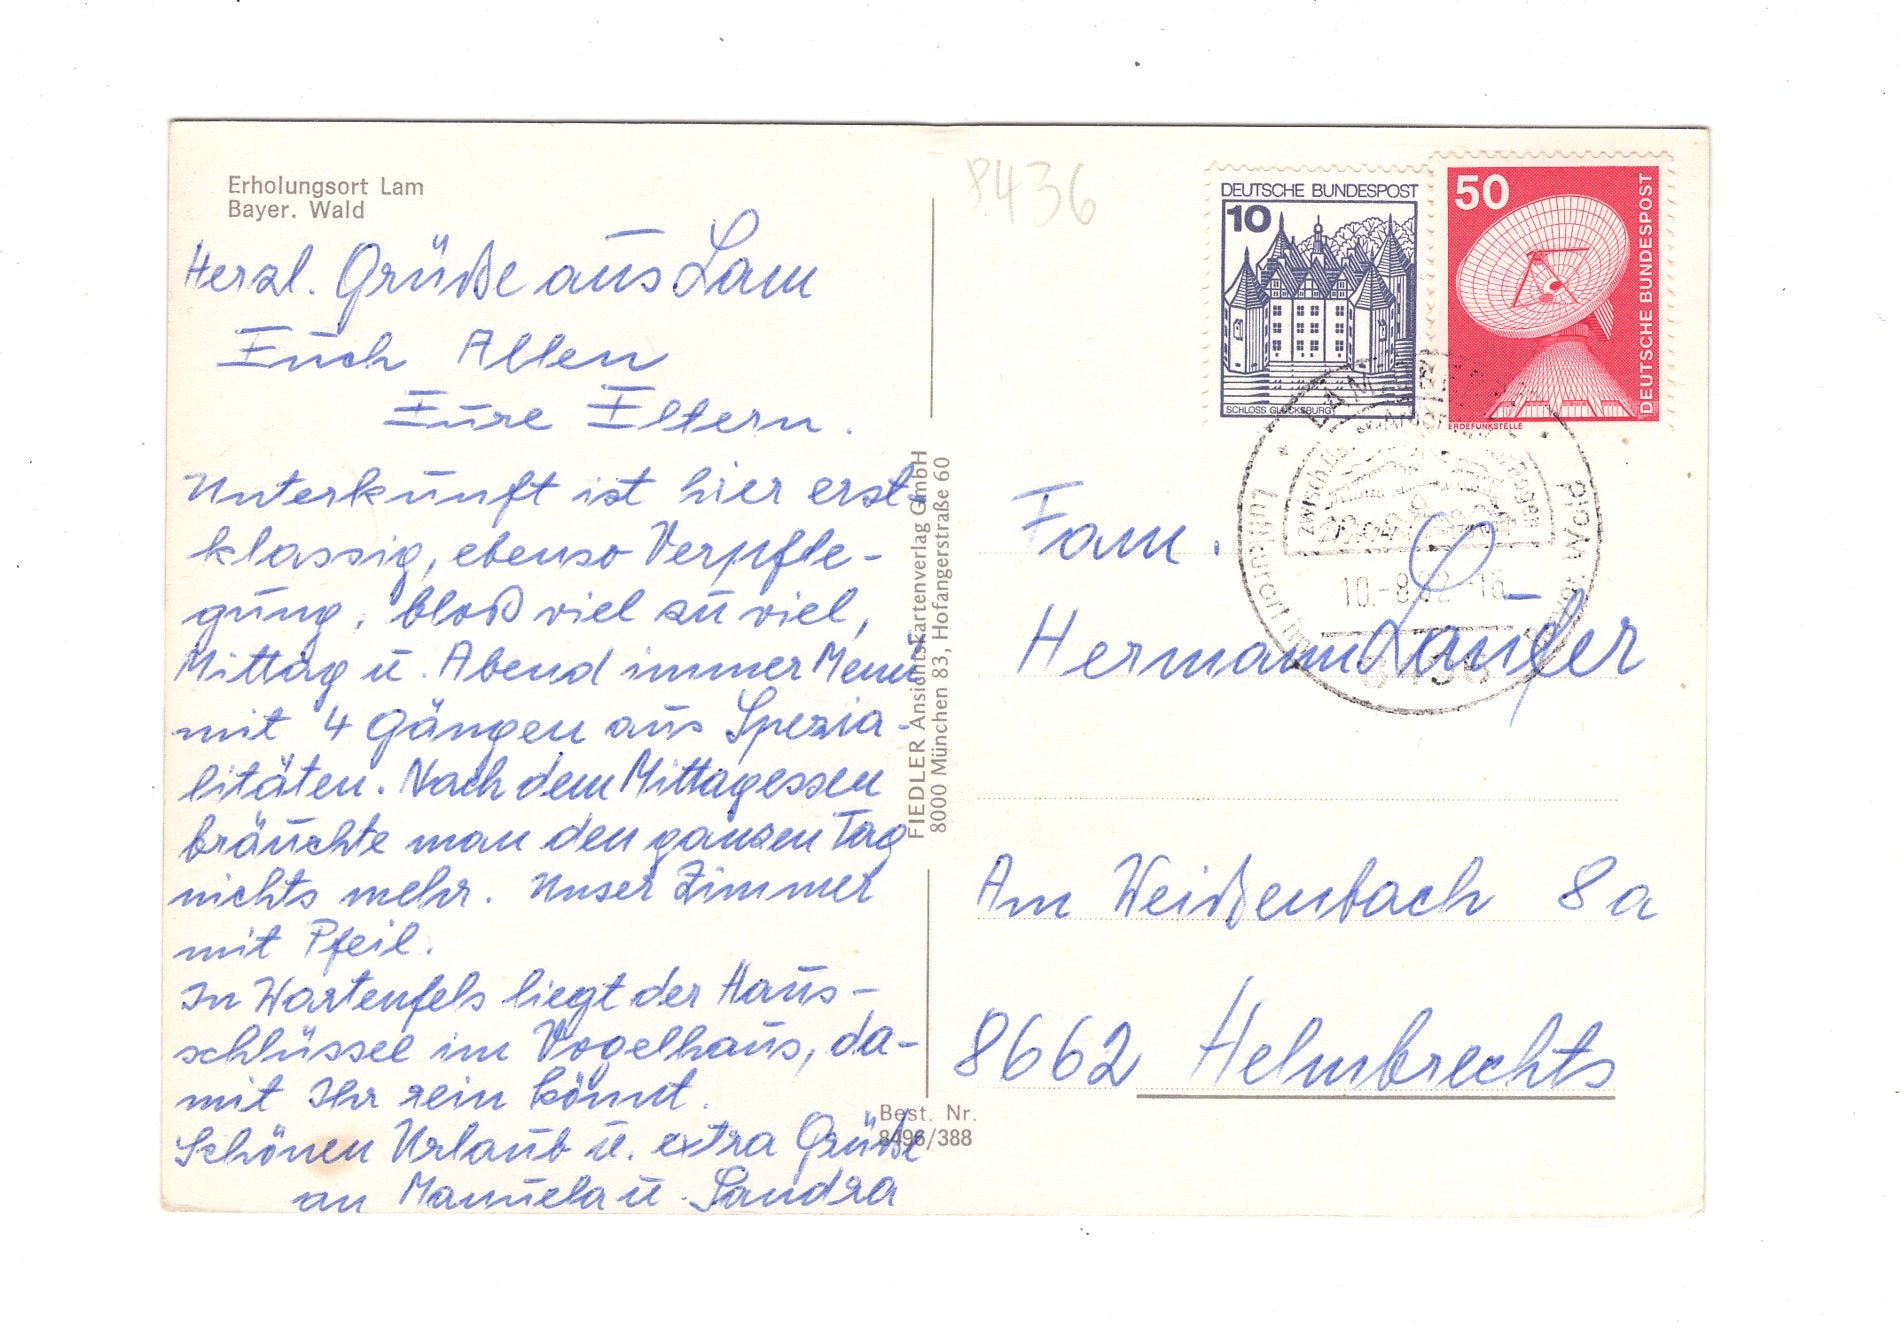 Erholungsort Lam
Bayer. Wald
Herzl. Grüße aus Lam
Euch Allen
Eure Eltern.
Unterkunft ist hier erst-
klassig, ebenso Verpfle-
gung, bloß viel zu viel,
Mittag u. Abend immer Menü
mit 4 Gängen aus Spezia-
litäten. Nach dem Mittagessen
bräuchte man den ganzen Tag
nichts mehr. Unser Zimmer
mit Pfeil.
In Wartenfels liegt der Haus-
schlüssel im Vogelhaus, da-
mit Ihr rein könnt.
Schönen Urlaub u. extra Grüße
an Manuela u. Sandra
FIEDLER Ansichtskartenverlag GmbH
8000 München 83, Hofangerstraße 60
Best. Nr.
8496/388
8436
DEUTSCHE BUNDESPOST
10
SCHLOSS GLÜCKSBURG
50
DEUTSCHE BUNDESPOST
ERDEFUNKSTELLE
LAM
zwisch
Luftkurort im Bayer. Wald
10.-8.82-16
8496
Fam.
Hermann Laufer
Am Weißenbach 8a
8662 Helmbrechts